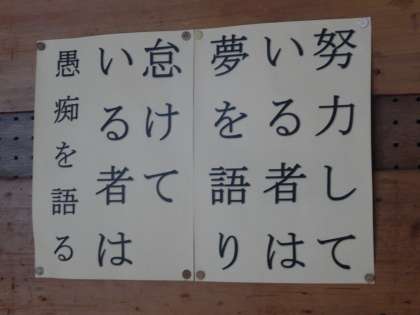 努力して
いる者は
夢を語り
怠けて
いる者は
愚痴を語る